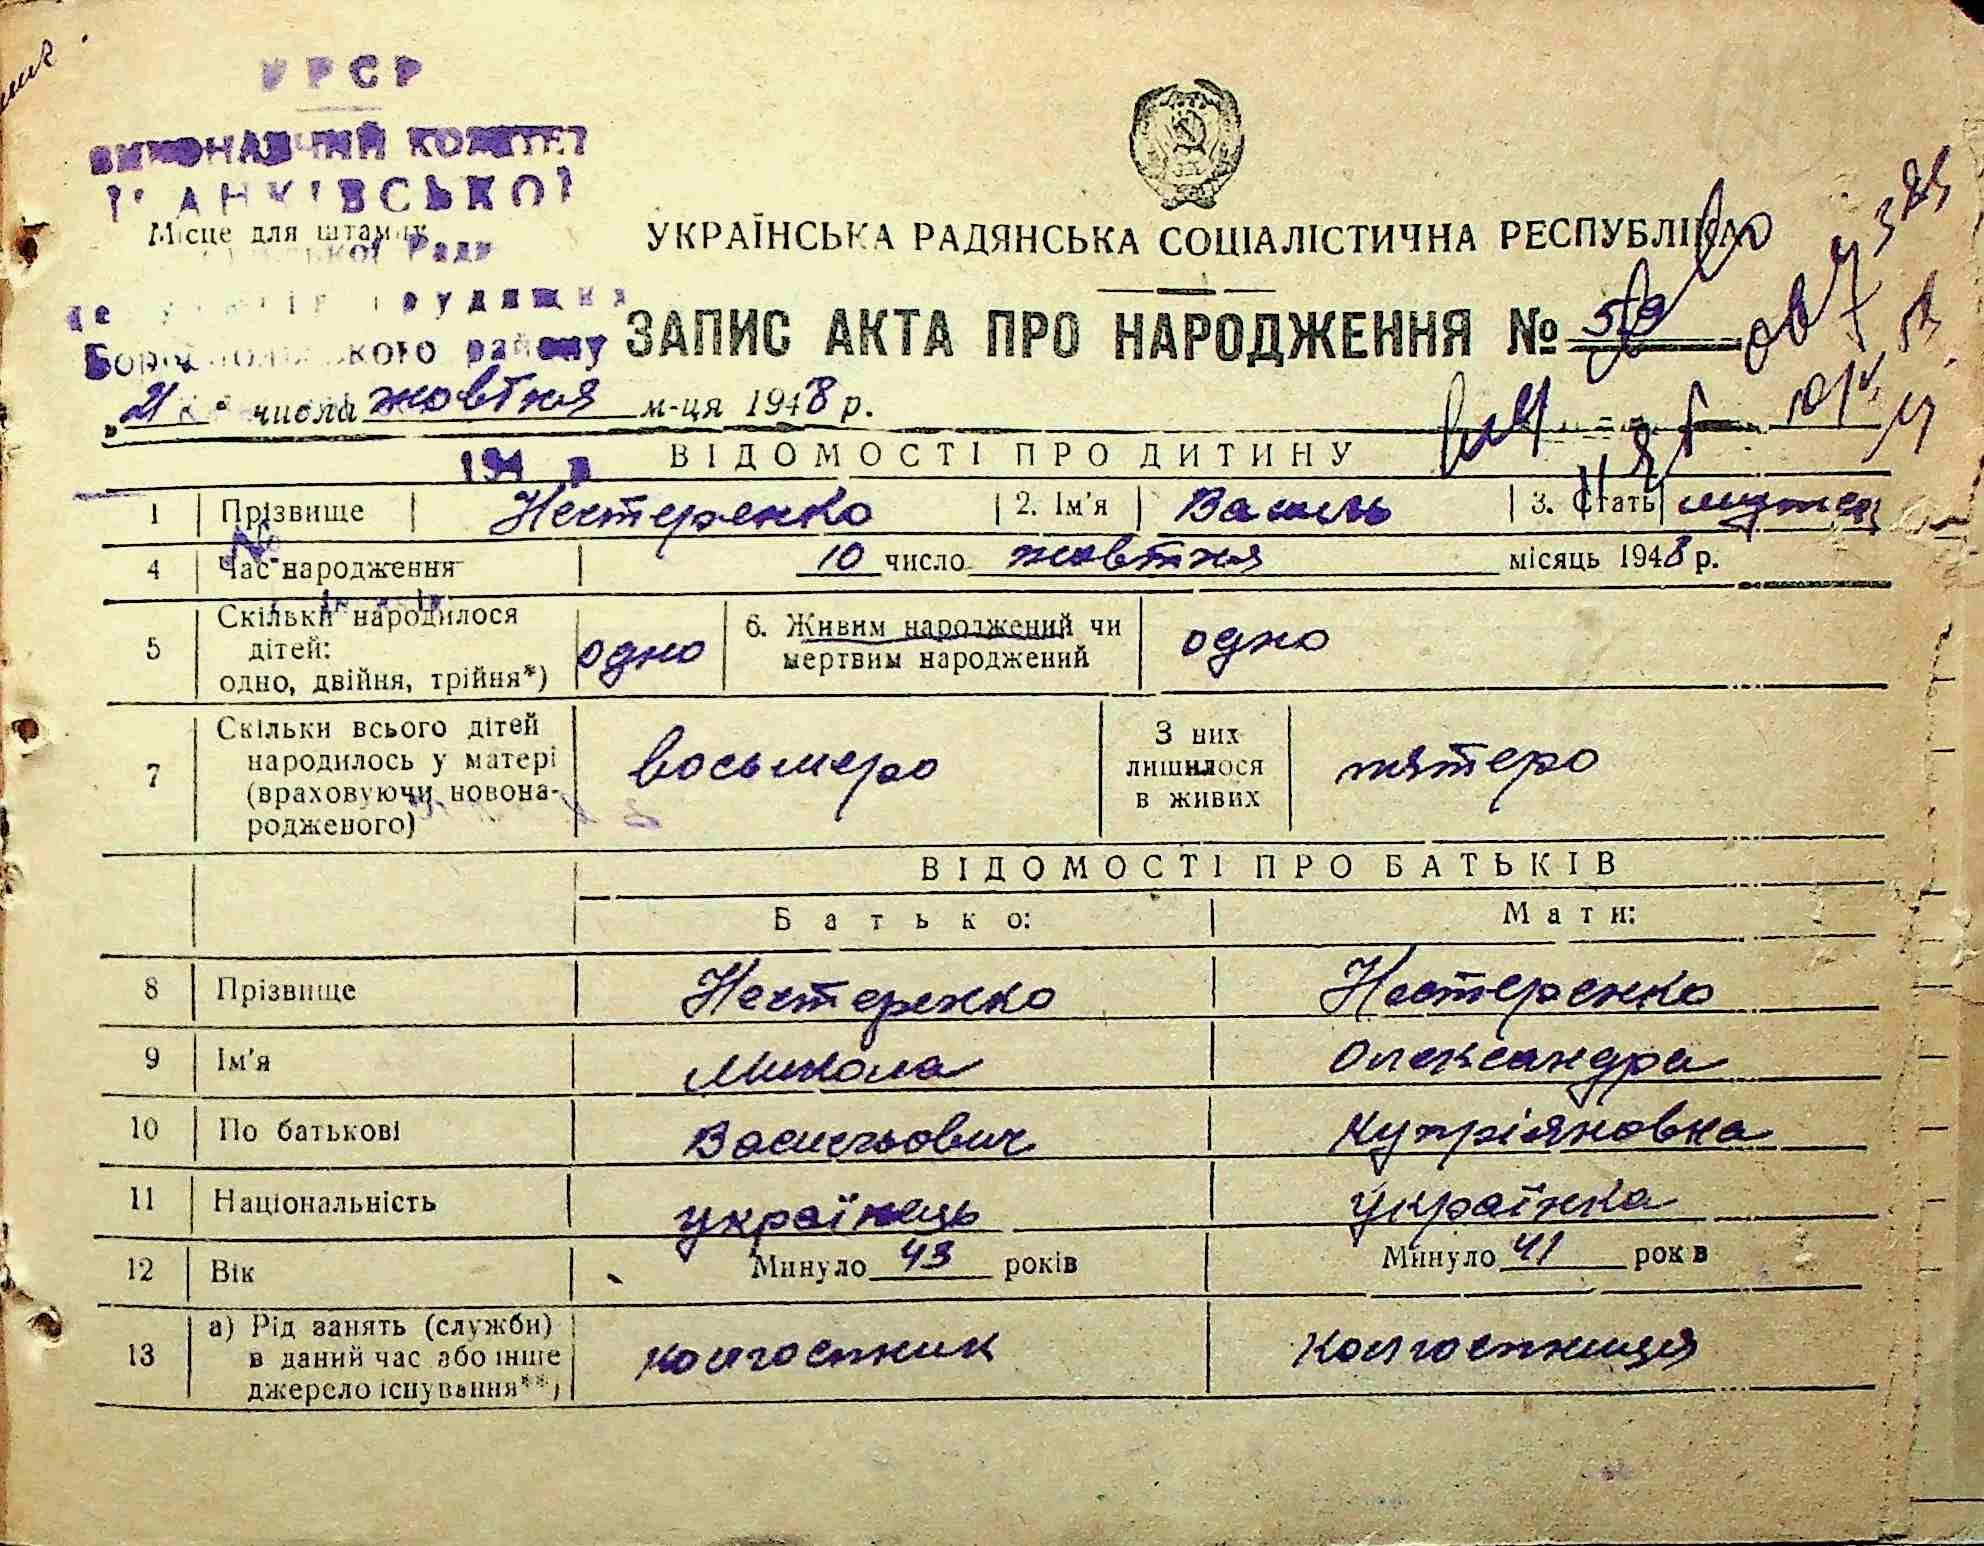 УРСР
ВИКОНАВЧИЙ КОМІТЕТ
ІВАНКІВСЬКОЇ
Місце для штампу
сільської Ради
депутатів трудящих
Бориспольського району
УКРАЇНСЬКА РАДЯНСЬКА СОЦІАЛІСТИЧНА РЕСПУБЛІКА
ЗАПИС АКТА ПРО НАРОДЖЕННЯ № 59
„21" числа жовтня м-ця 1948 р.
194 р
ВІДОМОСТІ ПРО ДИТИНУ
1 Прізвище Нестеренко 2. Ім'я Василь 3. Стать
№
4 Час народження 10 число жовтня місяць 1948 р.
5 Скільки народилося дітей: одно, двійня, трійня*) одно 6. Живим народжений чи мертвим народжений одно
7 Скільки всього дітей народилось у матері (враховуючи новонародженого) восьмеро З них лишилося в живих пятеро
ВІДОМОСТІ ПРО БАТЬКІВ
Батько: Мати:
8 Прізвище Нестеренко Нестеренко
9 Ім'я Микола Олександра
10 По батькові Васильович Купріяновна
11 Національність українець українка
12 Вік Минуло 43 років Минуло 41 років
13 а) Рід занять (служби) в даний час або інше джерело існування**) колгоспник колгоспниця